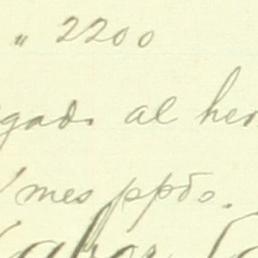 " 2200
gado al her
mes ppdo.